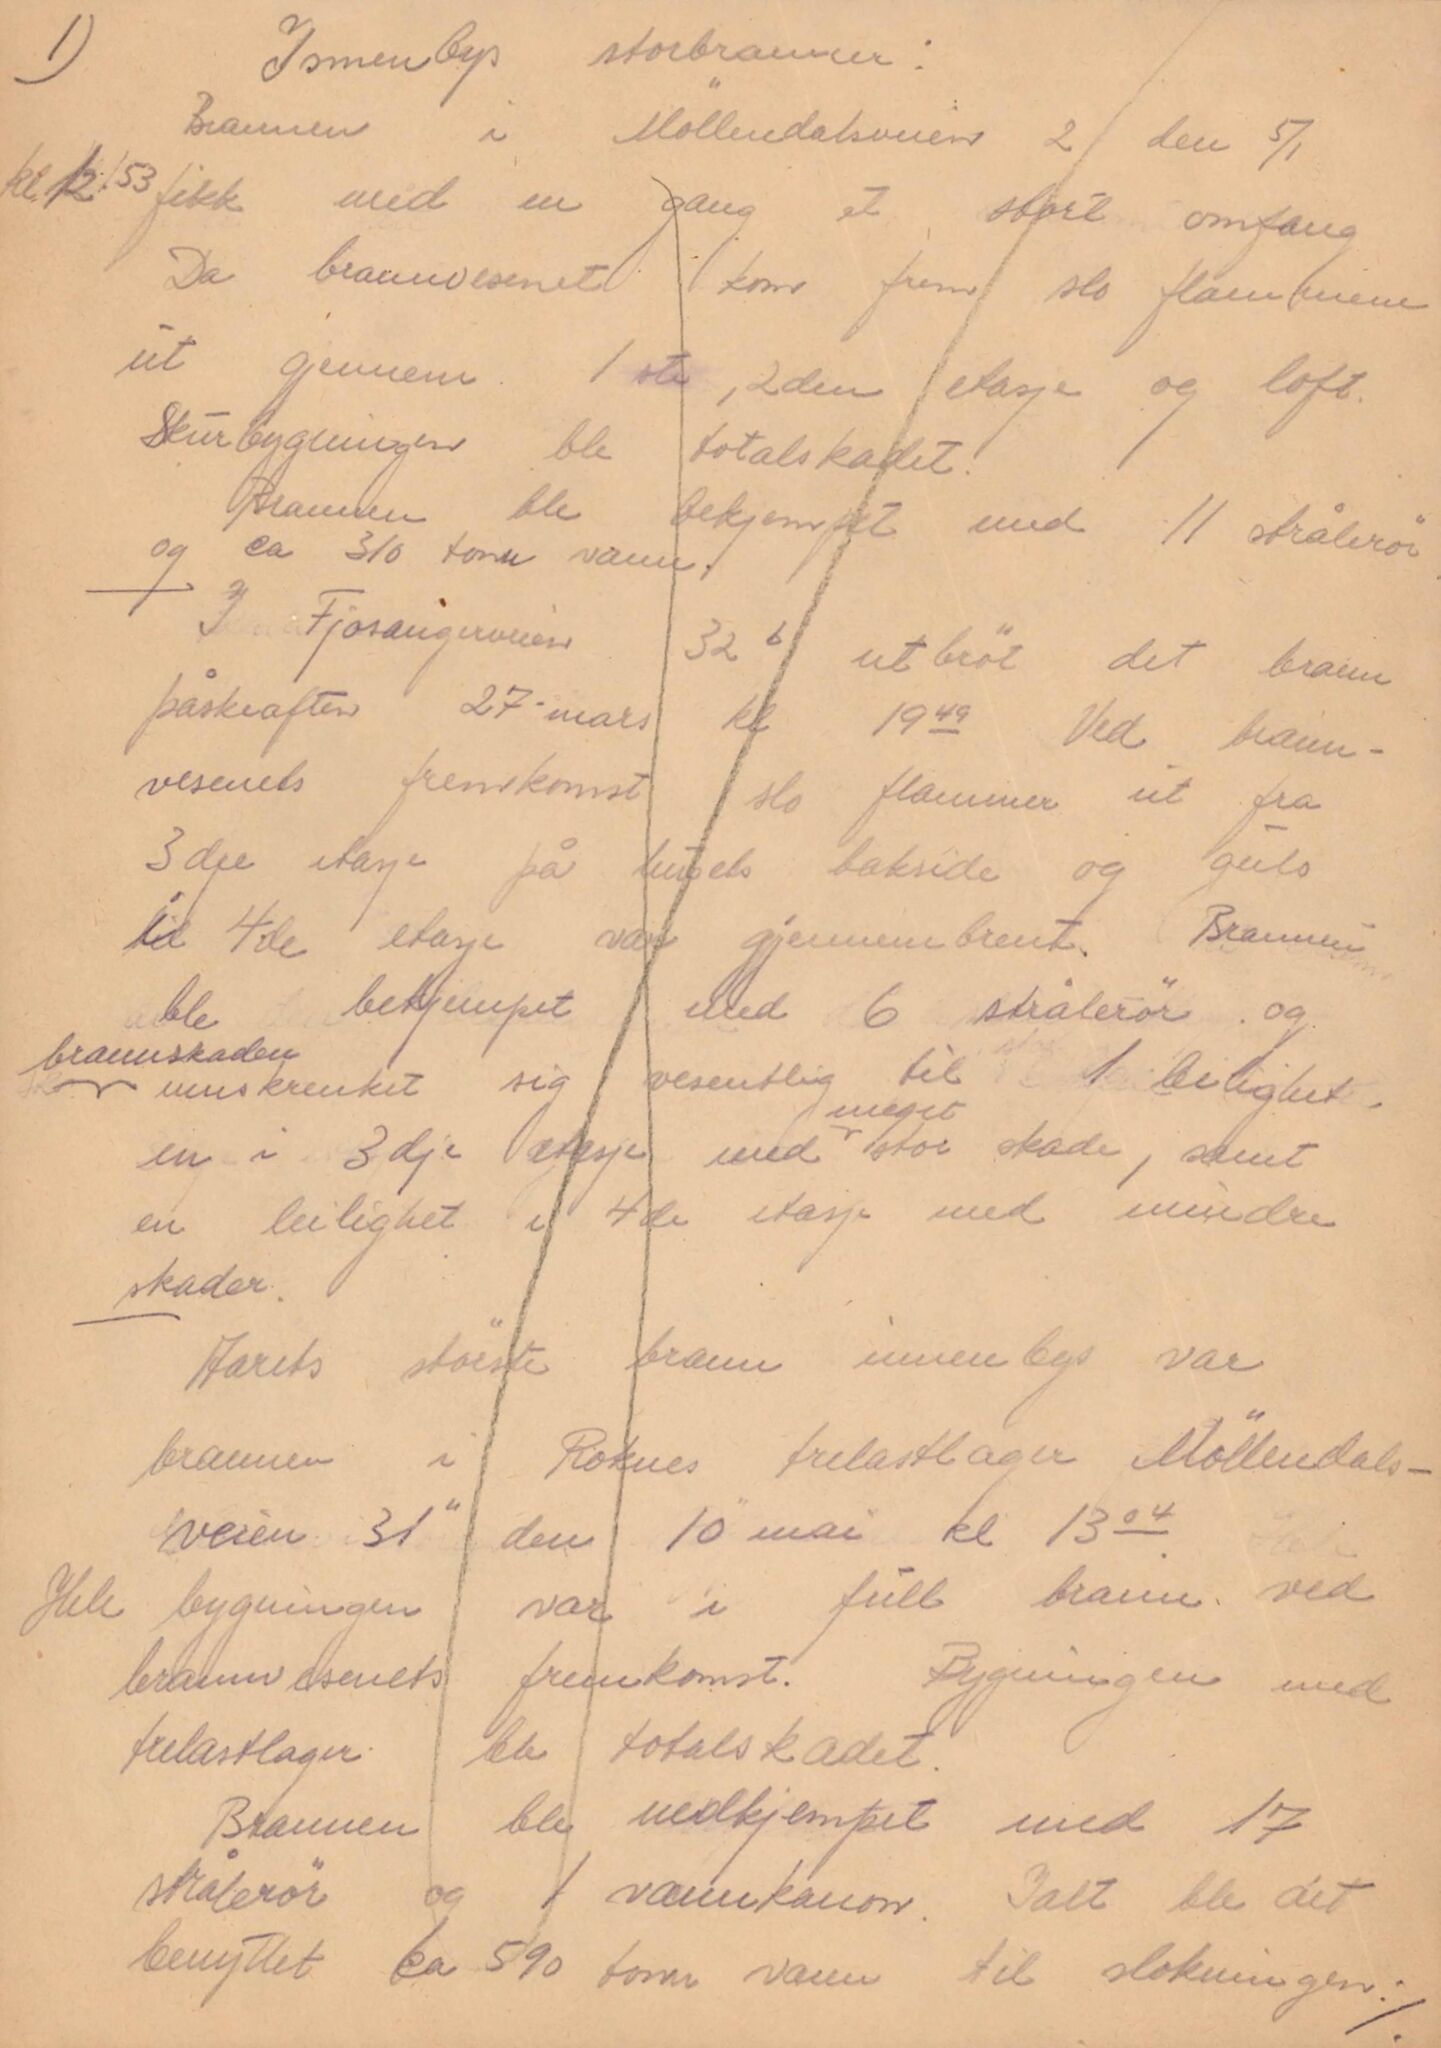 1)
Innenbys storbranner:
Brannen i Möllendalsveien 2 den 5/1
kl 12 53 fikk med en gang et stort omfang
Da brannvesenet kom frem slo flammene
ut gjennem 1ste, 2den etasje og loft.
Skurbygningen ble totalskadet.
Brannen ble bekjempet med 11 strålerör
og ca 310 tonn vann.
I Fjosangerveien 32 b utbröt det brann
påskeaften 27-mars kl 19 49 Ved brann-
vesenets fremkomst slo flammer ut fra
3dje etasje på husets bakside og gulv
til 4de etasje var gjennembrent. Brannen
ble bekjempet med 6 strålerör og
brannskaden
innskrenket sig vesentlig til 1 leilighet.
meget
en i 3dje etasje med stor skade, samt
en leilighet i 4de etasje med mindre
skader.
Aarets störste brann innenbys var
brannen i Roknes trelastlager Möllendals-
veien 31" den 10" mai kl 13 04
Hele bygningen var i full brann ved
brannvesenets fremkomst. Bygningen med
trelastlager ble totalskadet.
Brannen ble nedkjempet med 17
strålerör og 1 vannkanon. Ialt ble det
benyttet ca 590 tonn vann til slokningen./.